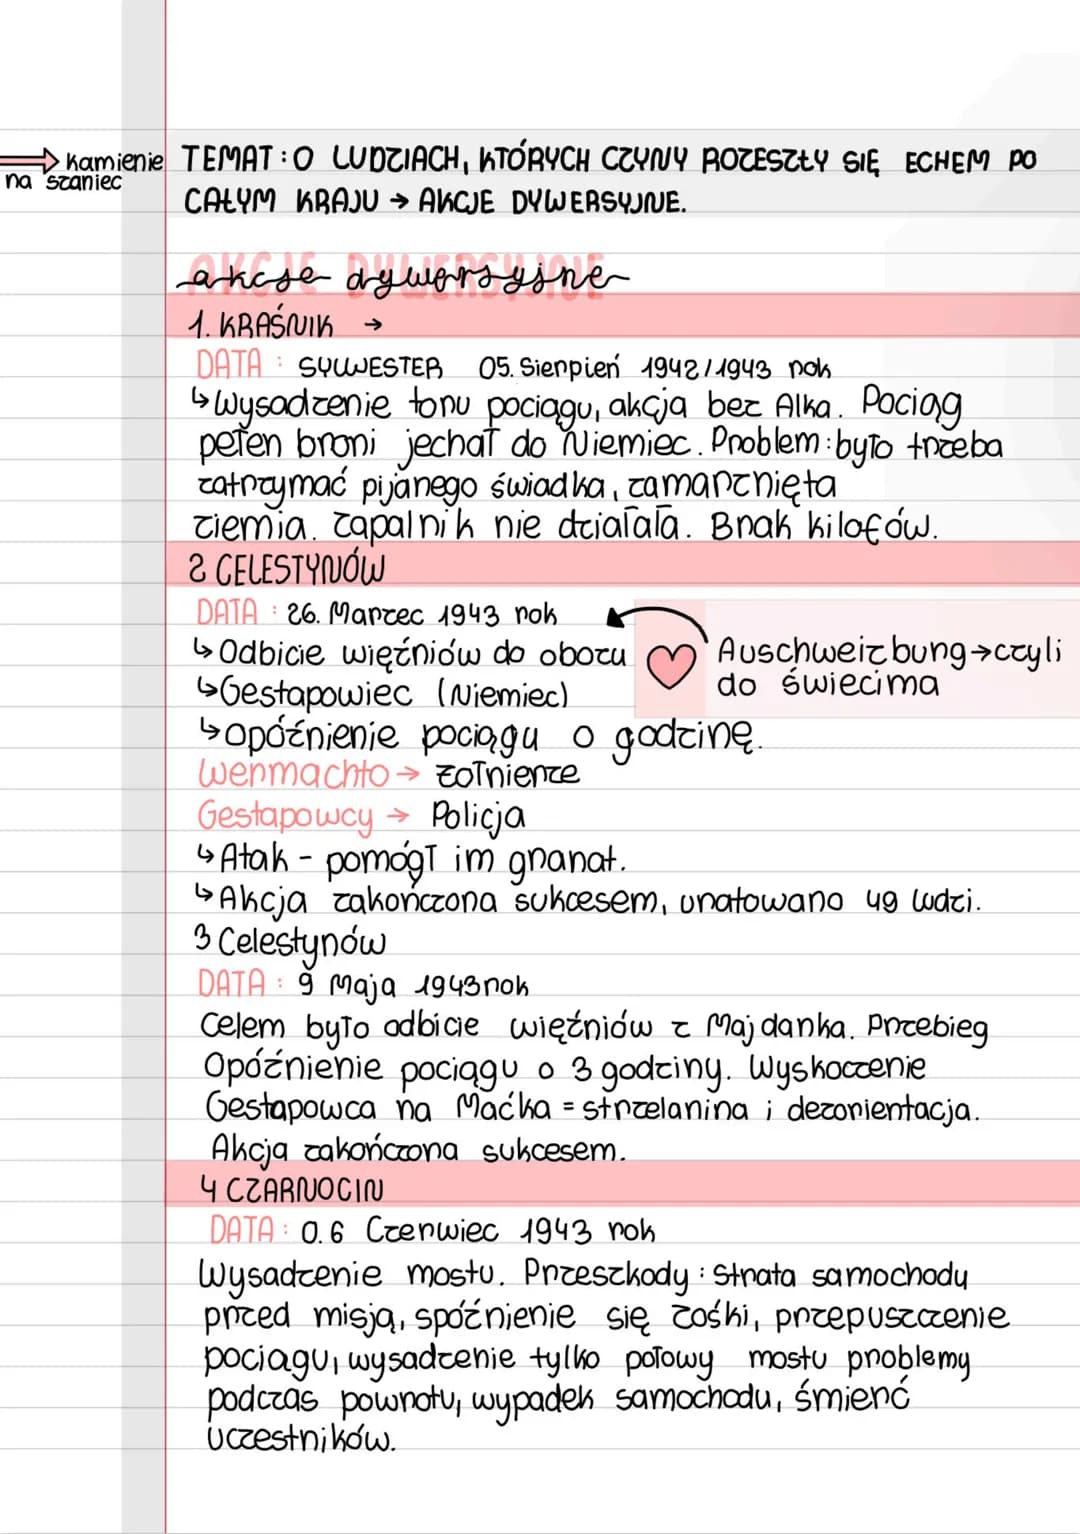 → Kamienie
na szaniec
TEMAT: O LUDZIACH, KTÓRYCH CZYNY ROZESZŁY SIĘ ECHEM PO
CAŁYM KRAJU → AKCJE DYWERSYJNE.
AKCJE DYWERSYJNE
akcje dywersyjne
1. KRAŚNIK →
DATA: SYLWESTER 05. Sierpień 1942/1943 rok
↳ Wysadzenie toru pociągu, akcja bez Alka. Pociąg
pełen broni jechał do Niemiec. Problem: było trzeba
zatrzymać pijanego świadka, zamarznięta
ziemia. Zapalnik nie działała. Brak kilofów.
2 CELESTYNÓW
DATA: 26. Marzec 1943 rok
↳ Odbicie więźniów do obozu
Auschweizbung → czyli
do świecima
↳ Gestapowiec (Niemiec)
↳ Opóźnienie pociągu o godzinę.
Wermachto → Żołnierze
Gestapowcy → Policja
↳ Atak - pomógł im granat.
↳ Akcja zakończona sukcesem, uratowano 49 ludzi.
3 Celestynów
DATA: 9 Maja 1943 rok
Celem było odbicie więźniów z Majdanka. Przebieg
Opóźnienie pociągu o 3 godziny. Wyskoczenie
Gestapowca na Maćka = strzelanina i dezorientacja.
Akcja zakończona sukcesem.
4 CZARNOCIN
DATA: 0.6 Czerwiec 1943 rok
Wysadzenie mostu. Przeszkody: Strata samochodu
przed misją, spóźnienie się Zośki, przepuszczenie
pociągu, wysadzenie tylko połowy mostu problemy
podczas powrotu, wypadek samochodu, śmierć
uczestników.